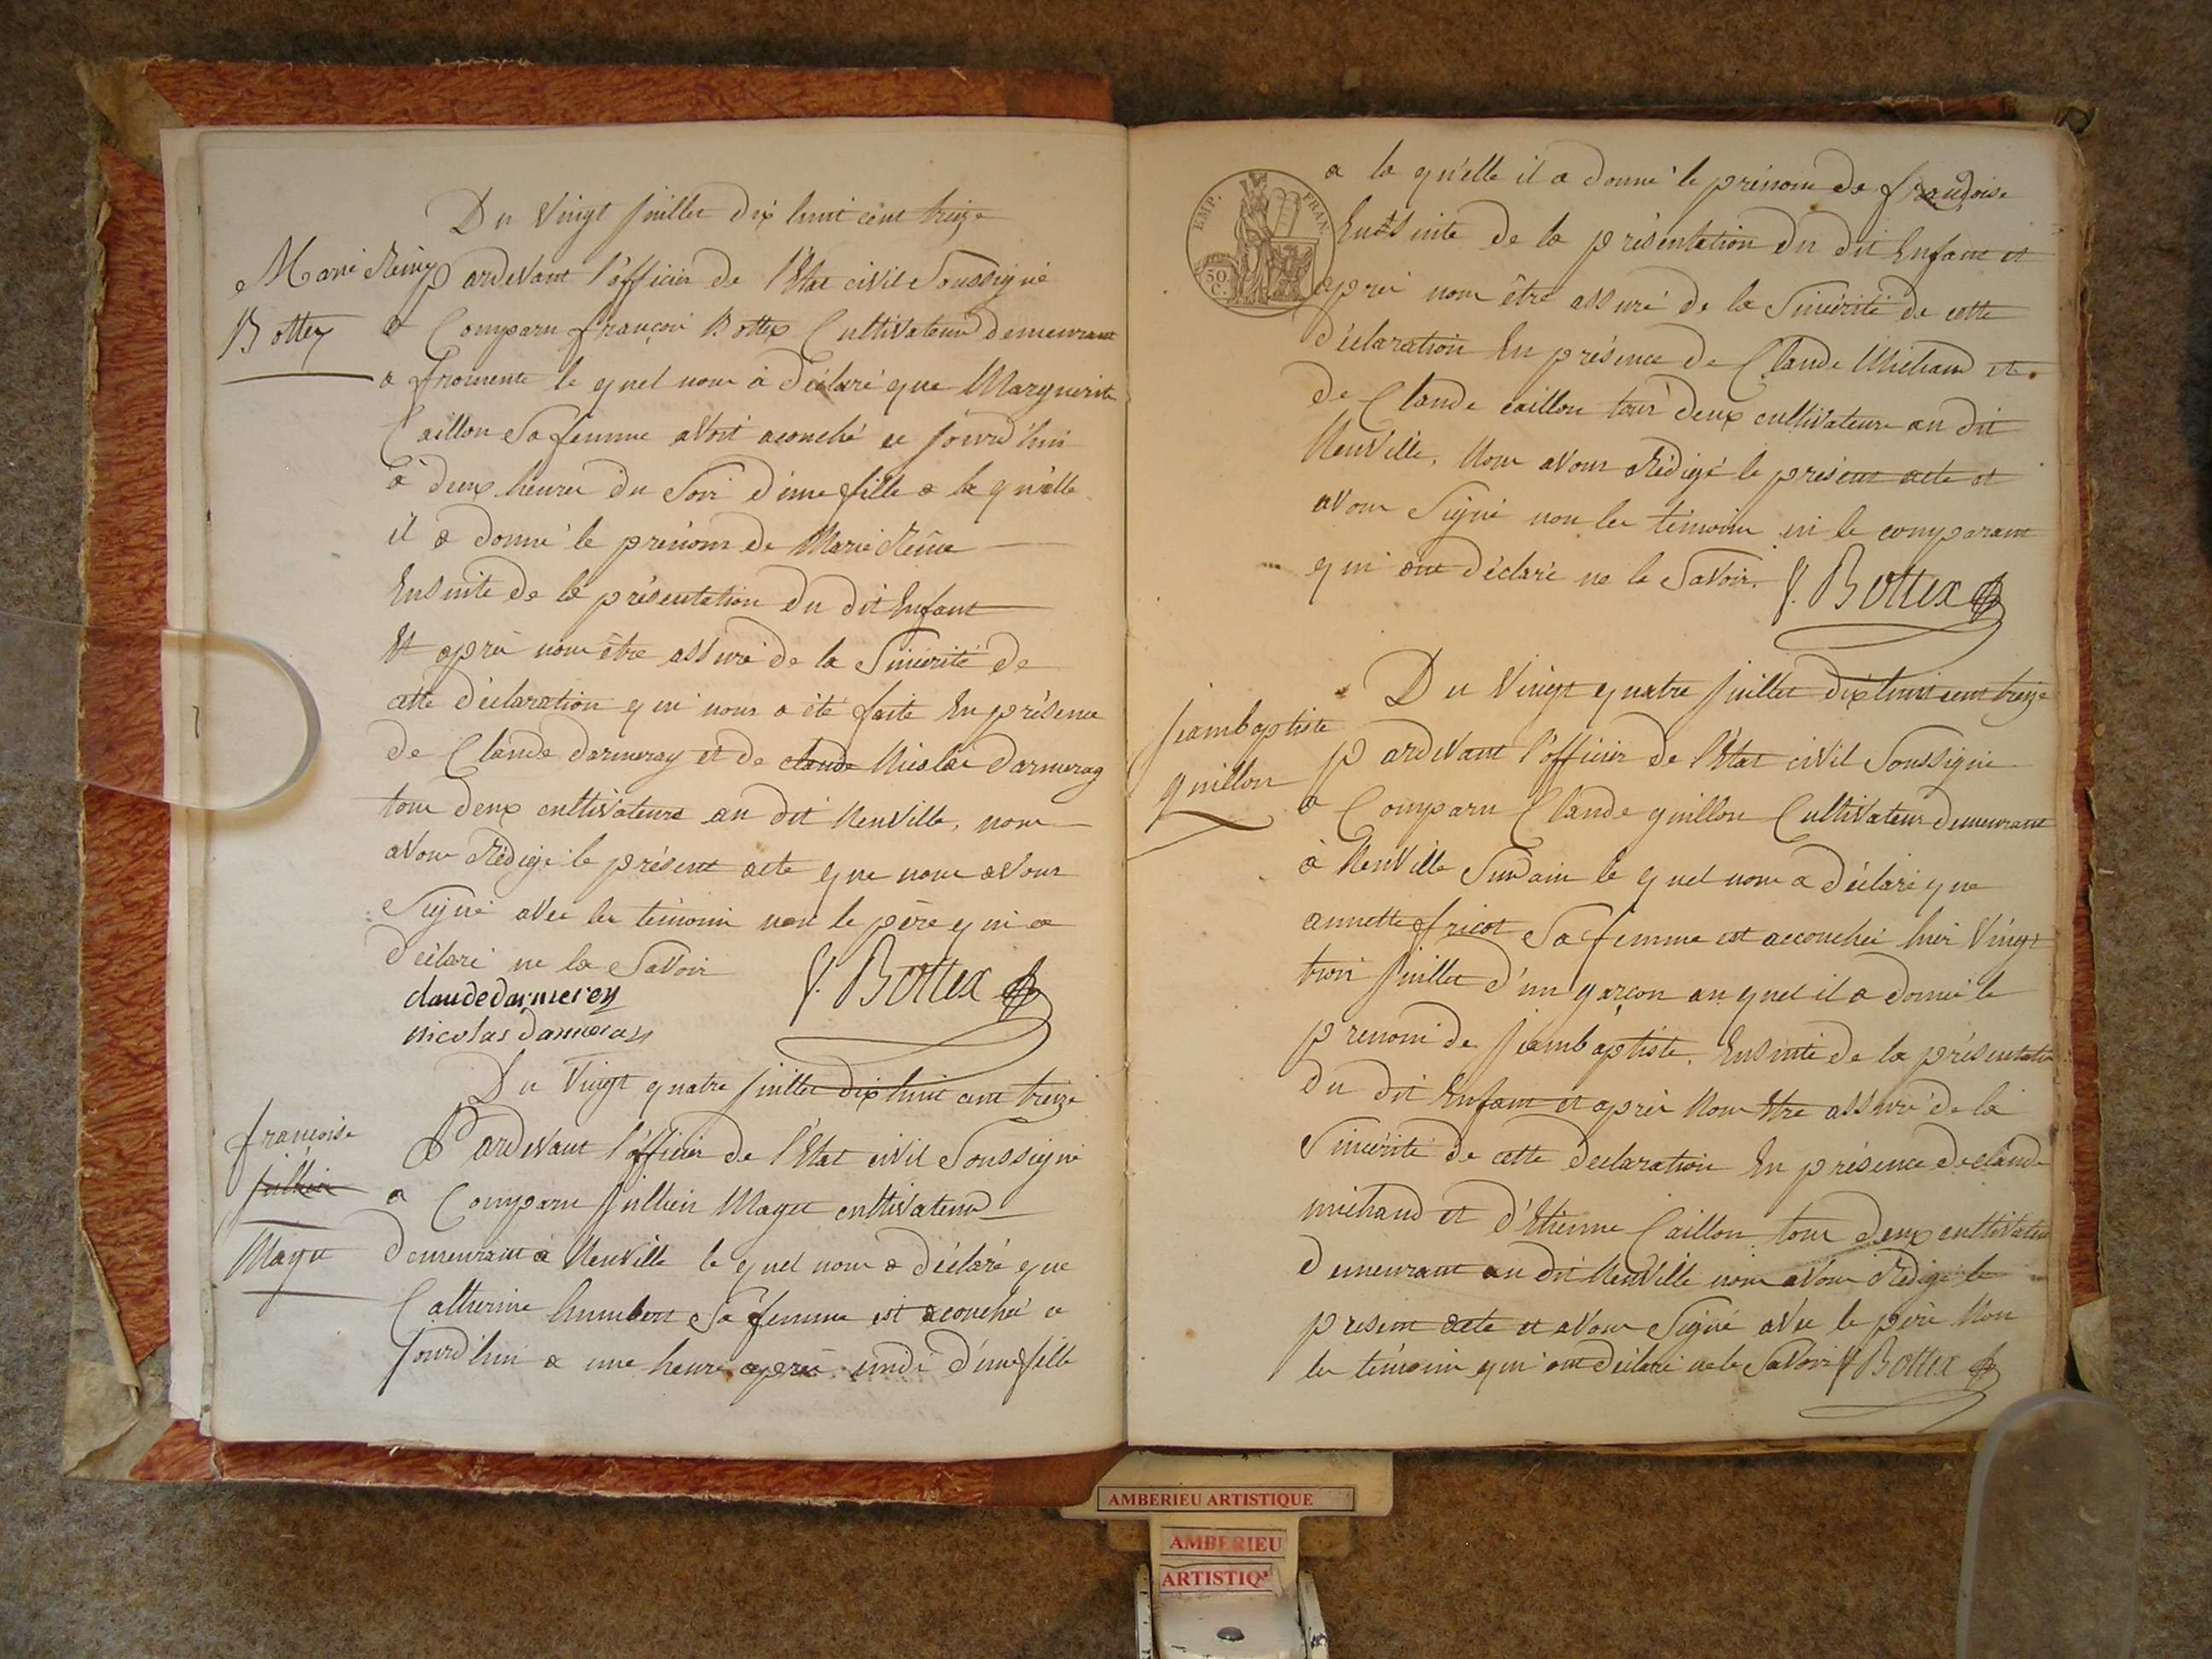 Du Vingt Juillet dix huit cent treize
Marie Reine
Bottex
pardevant l'officier de l'Etat civil Soussigné
a Comparu françois Bottex Cultivateur demeurant
a fromente le quel nous à déclaré que Marguerite
Caillon Sa femme avoit acouché ce jourd'hui
à deux heures du Soir d'une fille a la qu'elle
il a donné le prénom de Marie Reine
Ensuite de la présentation du dit Enfant
Et après nous être assuré de la Sincérité de
cette déclaration qui nous a été faite En présence
de Claude darmeray et de claude Nicolas darmeray
tous deux cultivateurs au dit Neuville, nous
avons Rédigé le présent acte que nous avons
Signé avec les témoins non le père qui a
déclaré ne le Savoir
f. Bottex
claude darmerey
nicolas darmeray
Du Vingt quatre Juillet dix huit cent treize
françoise
Jullien
Mayet
Pardevant l'officier de l'Etat civil Soussigné
a Comparu Jullien Mayet cultivateur
demeurant à Neuville le quel nous a déclaré que
Catherine humbert Sa femme est acouchée ce
jourd'hui a une heure après midi d'une fille
EMP. FRAN.
50 C.
a la qu'elle il a donné le prénom de françoise
Ensuite de la présentation du dit Enfant et
après nous être assuré de la Sincérité de cette
déclaration En présence de Claude Michaud et
de Claude caillon tous deux cultivateurs au dit
Neuville, Nous avons Rédigé le présent acte et
avons Signé non les témoins ni le comparant
qui ont déclaré ne le Savoir. f. Bottex
Du Vingt quatre Juillet dix huit cent treize
jeambaptiste
quillon
pardevant l'officier de l'Etat civil Soussigné
a Comparu Claude quillon Cultivateur demeurant
à Neuville Surdain le quel nous a déclaré que
annette fricot Sa femme est accouchée hier Vingt
trois Juillet d'un garçon au quel il a donné le
prenom de jeambaptiste. Ensuite de la présentation
du dit Enfant et après Nous Etre assuré de la
Sincérité de cette declaration En présence de claude
michaud et d'Etienne Caillon tous deux cultivateurs
demeurant au dit Neuville nous avons Rédigé le
present acte et avons Signé avec le père Non
les témoins qui ont déclaré ne le Savoir f. Bottex
AMBERIEU ARTISTIQUE
AMBERIEU
ARTISTIQ